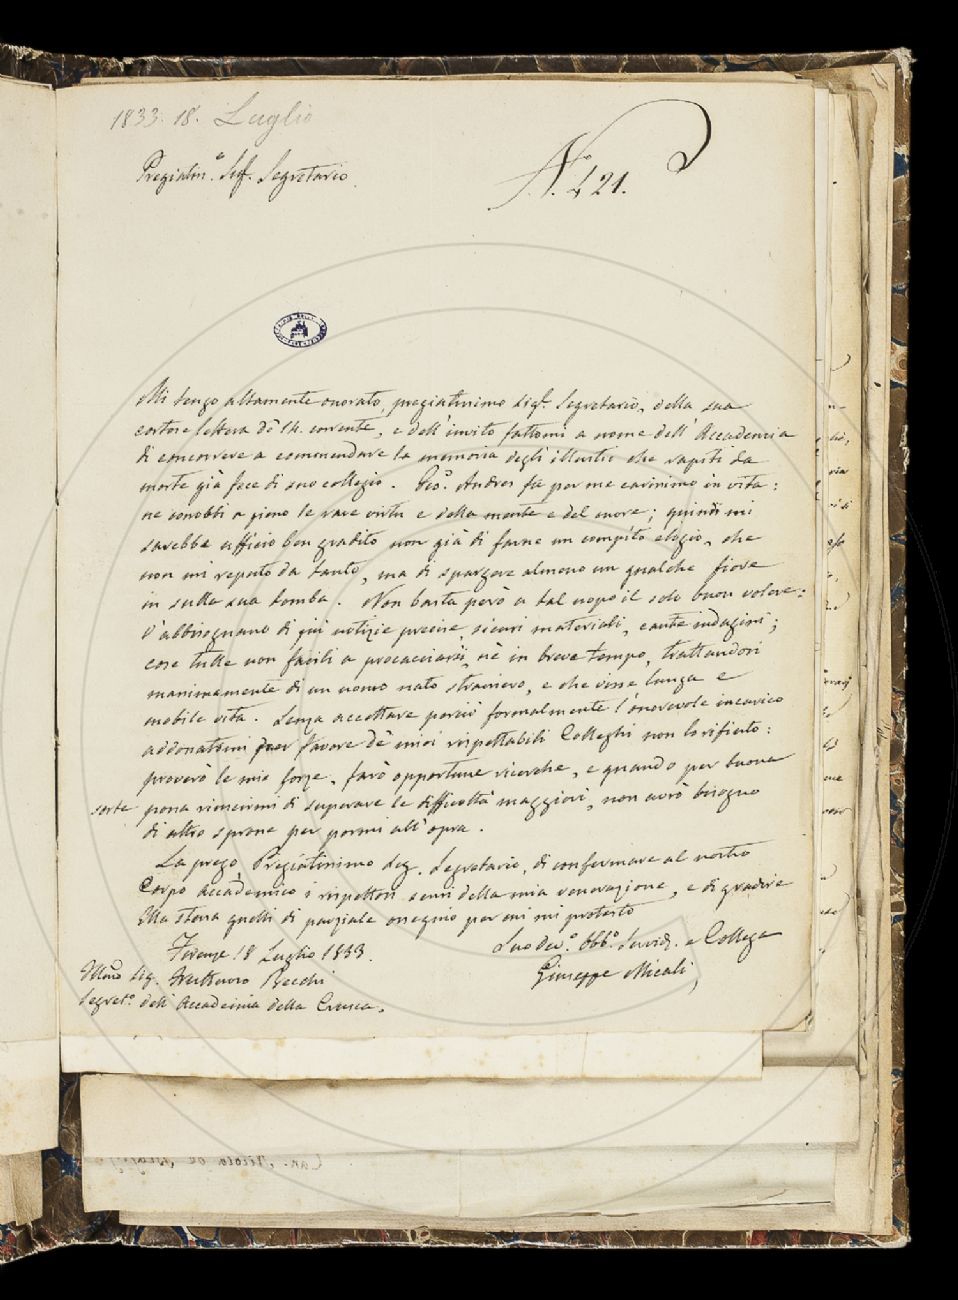 1833. 18. Luglio
Pregiatin.º Sig.r Segretario.
N.º 421.
Mi tengo altamente onorato, pregiatissimo Sig.r Segretario, della sua
cortese lettera de' 14. corrente, e dell'invito fattomi a nome dell'Accademia
di concorrere a commendare la memoria degli illustri che rapiti da
morte già fece di suo collegio. Andres fu per me carissimo in vita:
ne conobbi a pieno le rare virtu e della mente e del cuore; quindi mi
sarebbe ufficio ben gradito non già di farne un compito elogio, che
non mi reputo da tanto, ma di spargere almeno un qualche fiore
in sulla sua tomba. Non basta però a tal uopo il solo buon volere:
v'abbisognano di più notizie precise, sicuri materiali, caute indagini;
cose tutte non facili a procacciarsi, nè in breve tempo, trattandosi
massimamente di un uomo nato straniero, e che visse lunga e
mobile vita. Senza accettare perciò formalmente l'onorevole incarico
addossatomi per favore de' miei rispettabili Colleghi non lo rifiuto:
proverò le mie forze, farò opportune ricerche, e quando per buona
sorte possa riuscirmi di superare le difficoltà maggiori, non avrò bisogno
di altro sprone per pormi all'opra.
La prego, Pregiatissimo Sig. Segretario, di confermare al nostro
Corpo Accademico i rispettosi sensi della mia venerazione, e di gradire
Ella stessa quelli di parziale ossequio per cui mi protesto
Firenze 18 Luglio 1833.
Suo dev.º obb.º Servid. e Collega
Giuseppe Micali
Sig. Fruttuoso Becchi
Segret.º dell'Accademia della Crusca.